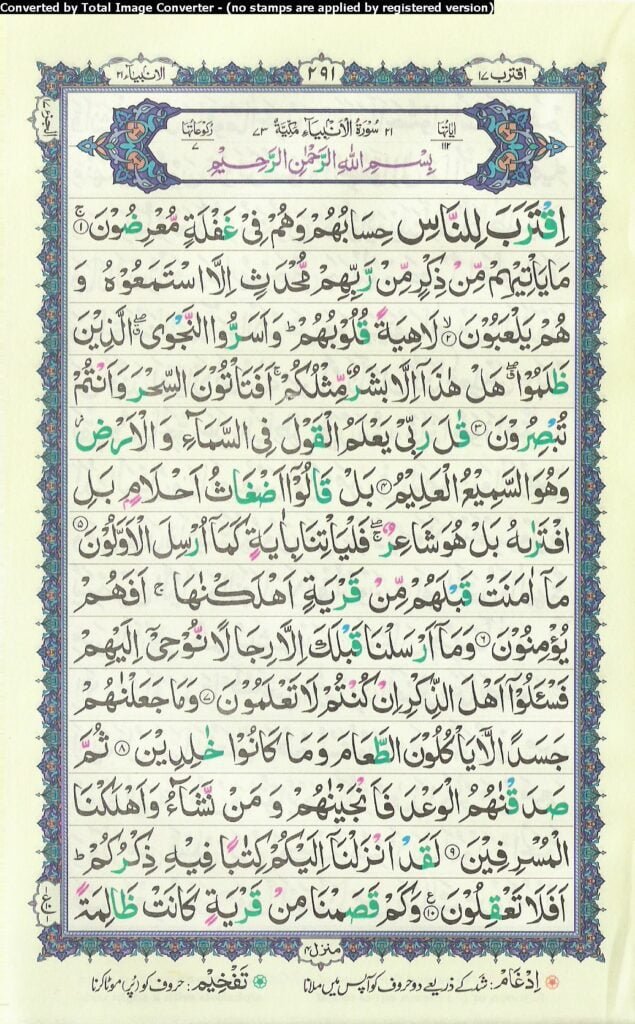 Converted by Total Image Converter - (no stamps are applied by registered version)
اقترب ١٧
٢٩١
الانبیآء ٢١
اٰیاتُہا ١١٢
٢١ سُوْرَةُ الْاَنْۢبِیَآءِ مَکِّیَّةٌ ٧٣
رُکُوْعَاتُہَا ٧
بِسْمِ اللّٰهِ الرَّحْمٰنِ الرَّحِیْمِ
اِقْتَرَبَ لِلنَّاسِ حِسَابُهُمْ وَهُمْ فِیْ غَفْلَةٍ مُّعْرِضُوْنَ ۚ﴿۱﴾
مَا یَاْتِیْهِمْ مِّنْ ذِكْرٍ مِّنْ رَّبِّهِمْ مُّحْدَثٍ اِلَّا اسْتَمَعُوْهُ وَ
هُمْ یَلْعَبُوْنَ ۙ﴿۲﴾ لَاهِیَةً قُلُوْبُهُمْ ؕ وَاَسَرُّوا النَّجْوَی ۖۗ الَّذِیْنَ
ظَلَمُوْا ۖۗ هَلْ هٰذَاۤ اِلَّا بَشَرٌ مِّثْلُكُمْ ۚ اَفَتَاْتُوْنَ السِّحْرَ وَاَنْتُمْ
تُبْصِرُوْنَ ﴿۳﴾ قٰلَ رَبِّیْ یَعْلَمُ الْقَوْلَ فِی السَّمَآءِ وَ الْاَرْضِ ؗ
وَهُوَ السَّمِیْعُ الْعَلِیْمُ ﴿۴﴾ بَلْ قَالُوْۤا اَضْغَاثُ اَحْلَامٍۭ بَلِ
افْتَرٰىهُ بَلْ هُوَ شَاعِرٌ ۖۚ فَلْیَاْتِنَا بِاٰیَةٍ كَمَاۤ اُرْسِلَ الْاَوَّلُوْنَ ﴿۵﴾
مَاۤ اٰمَنَتْ قَبْلَهُمْ مِّنْ قَرْیَةٍ اَهْلَكْنٰهَا ۚ اَفَهُمْ
یُؤْمِنُوْنَ ﴿۶﴾ وَمَاۤ اَرْسَلْنَا قَبْلَكَ اِلَّا رِجَالًا نُّوْحِیْۤ اِلَیْهِمْ
فَسْـَٔلُوْۤا اَهْلَ الذِّكْرِ اِنْ كُنْتُمْ لَا تَعْلَمُوْنَ ﴿۷﴾ وَمَا جَعَلْنٰهُمْ
جَسَدًا لَّا یَاْكُلُوْنَ الطَّعَامَ وَمَا كَانُوْا خٰلِدِیْنَ ﴿۸﴾ ثُمَّ
صَدَقْنٰهُمُ الْوَعْدَ فَاَنْجَیْنٰهُمْ وَ مَنْ نَّشَآءُ وَاَهْلَكْنَا
الْمُسْرِفِیْنَ ﴿۹﴾ لَقَدْ اَنْزَلْنَاۤ اِلَیْكُمْ كِتٰبًا فِیْهِ ذِكْرُكُمْ ؕ
اَفَلَا تَعْقِلُوْنَ ﴿۱۰﴾ وَكَمْ قَصَمْنَا مِنْ قَرْیَةٍ كَانَتْ ظَالِمَةً
منزل ٤
اِدْغَام: شدّ کے ذریعے دو حروف کو آپس میں ملانا
تَفْخِیْم: حروف کو (پُر) موٹا کرنا